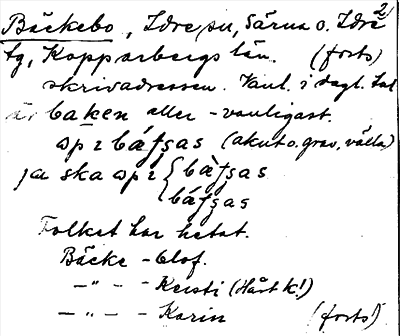 2
Bäckebo, Idre sn, Särna o. Idre
tg, Kopparbergs län. (forts)
skrivadressen. Vanl. i dagl. tal
är baken eller - vanligast.
báfsas (akut o. grav, växla)
ja ska bàfsas
báfsas
Folket har hetat.
Bäcke - Olof.
-"- - Kersti (Hårt k!)
-"- - Karin (forts!)